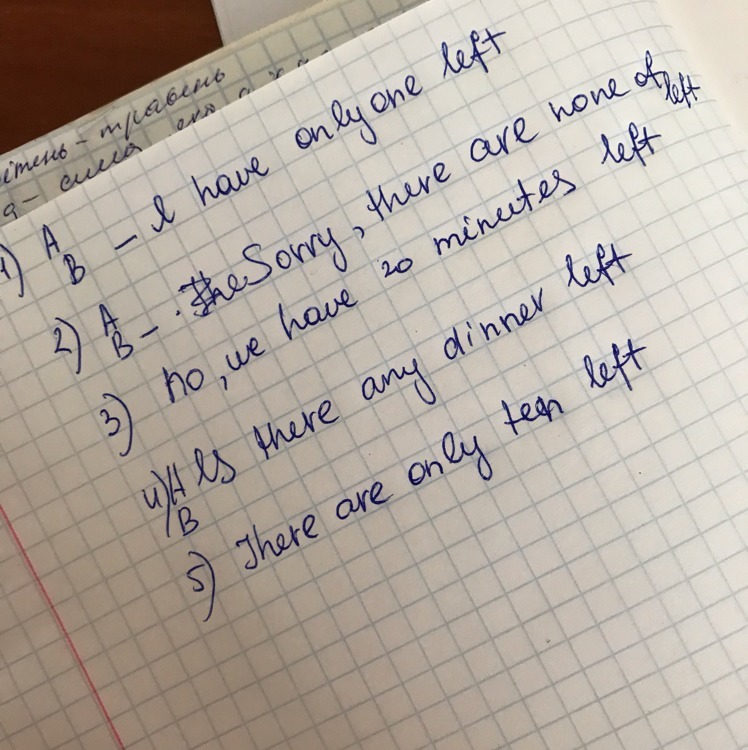 ітень - травень
1) A
B - I have only one left
2) A
B - . The Sorry, there are none of left
3) no, we have 20 minutes left
4) A Is there any dinner left
B
5) There are only ten left